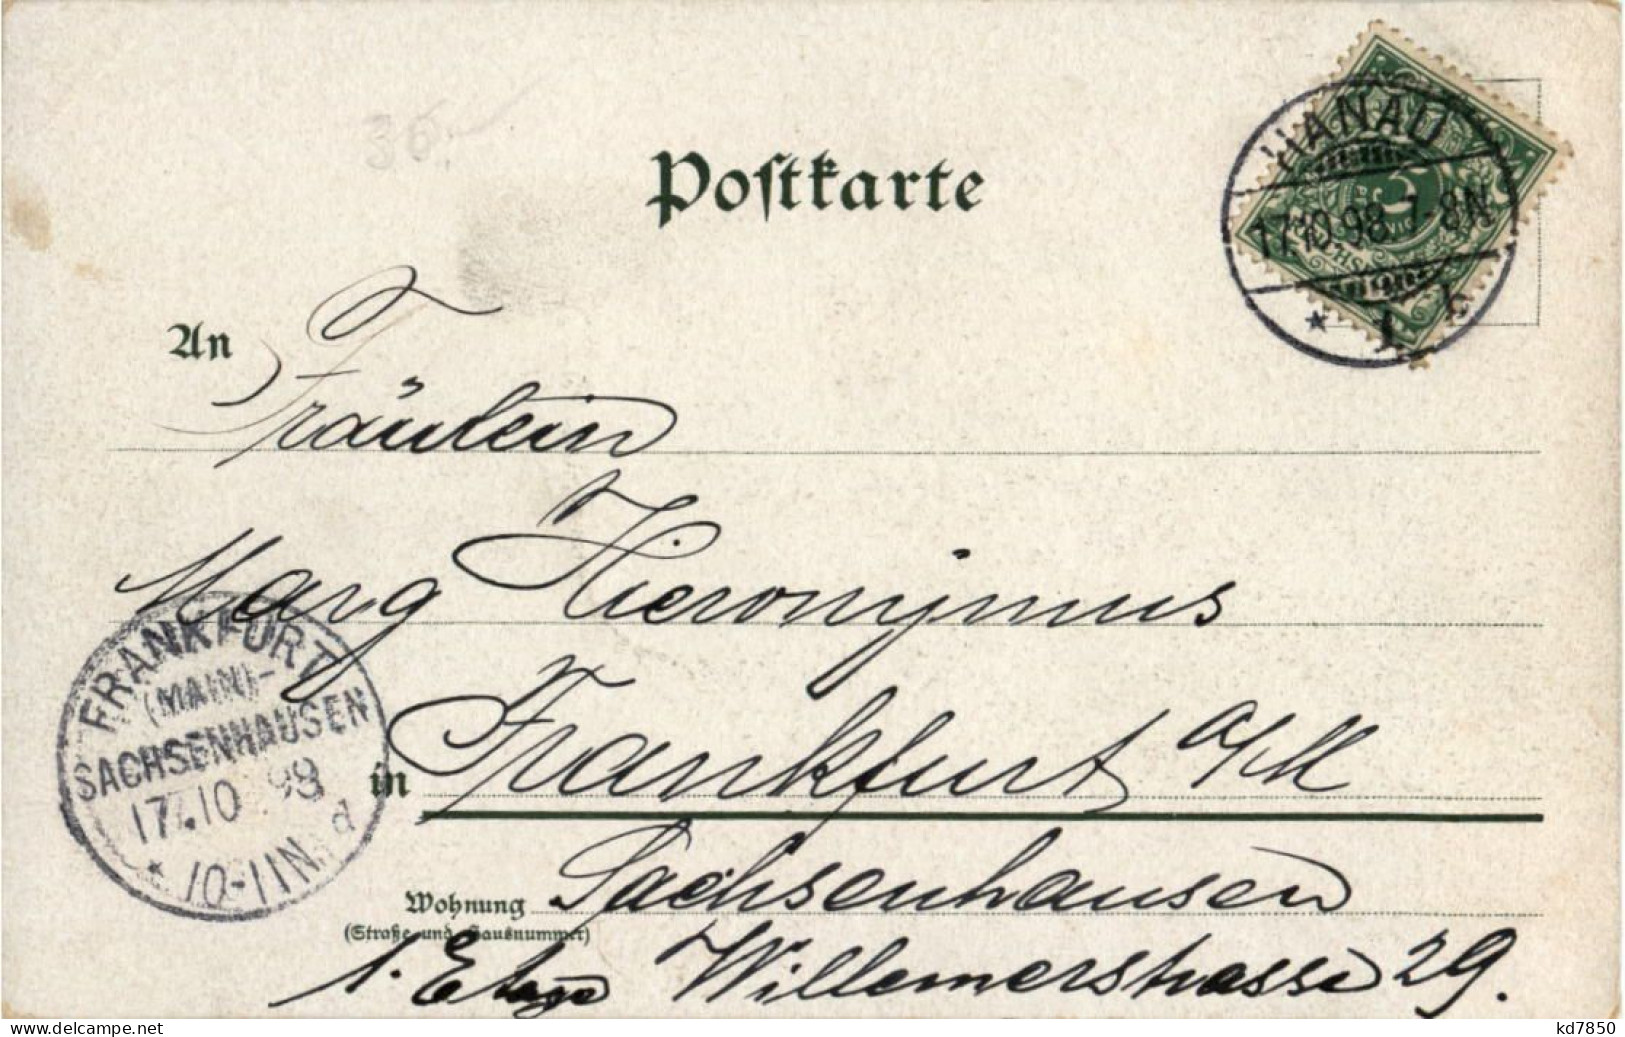 36.-
Postkarte
HANAU
17.10.98. 7-8N
* 1 b
An
Fräulein
Marg Hieronymus
FRANKFURT
(MAIN)-
SACHSENHAUSEN
17.10 98
* 10-11N. d
in Frankfurt a/M
Wohnung Sachsenhausen
(Straße und Hausnummer)
1. Etage Willemerstrasse 29.
www.delcampe.net
kd7850